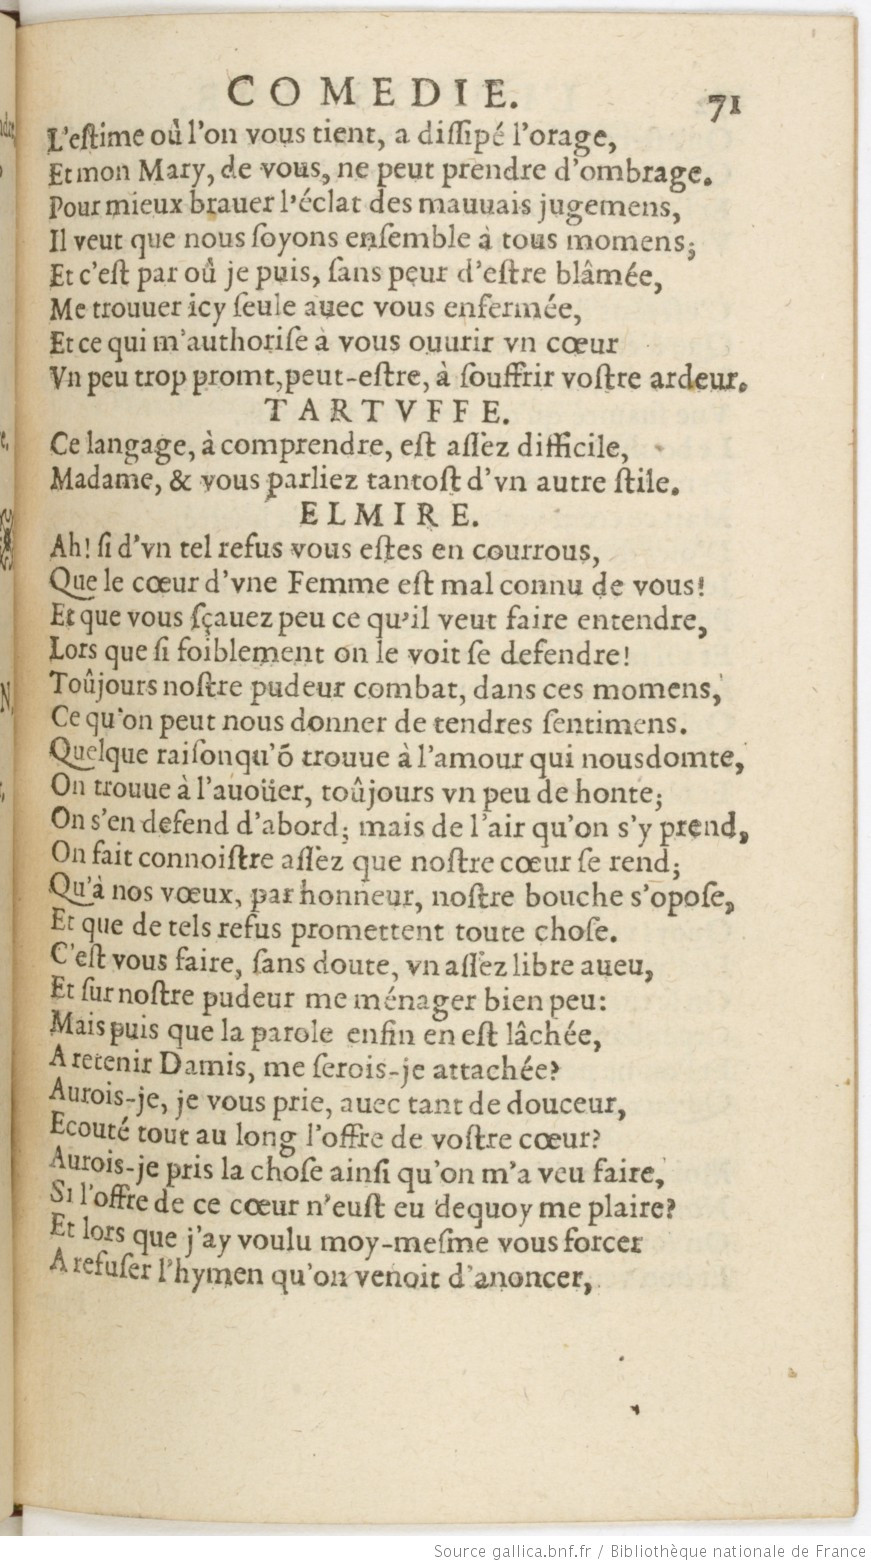 COMEDIE. 71
L'eſtime où l'on vous tient, a diſſipé l'orage,
Et mon Mary, de vous, ne peut prendre d'ombrage.
Pour mieux brauer l'éclat des mauuais jugemens,
Il veut que nous ſoyons enſemble à tous momens;
Et c'eſt par où je puis, ſans peur d'eſtre blâmée,
Me trouuer icy ſeule auec vous enfermée,
Et ce qui m'authoriſe à vous ouurir vn cœur
Vn peu trop promt, peut-eſtre, à ſouffrir voſtre ardeur.
TARTVFFE.
Ce langage, à comprendre, eſt aſſez difficile,
Madame, & vous parliez tantoſt d'vn autre ſtile.
ELMIRE.
Ah! ſi d'vn tel refus vous eſtes en courrous,
Que le cœur d'vne Femme eſt mal connu de vous!
Et que vous ſçauez peu ce qu'il veut faire entendre,
Lors que ſi foiblement on le voit ſe defendre!
Toûjours noſtre pudeur combat, dans ces momens,
Ce qu'on peut nous donner de tendres ſentimens.
Quelque raiſon qu'õ trouue à l'amour qui nous domte,
On trouue à l'auoüer, toûjours vn peu de honte;
On s'en defend d'abord; mais de l'air qu'on s'y prend,
On fait connoiſtre aſſez que noſtre cœur ſe rend;
Qu'à nos vœux, par honneur, noſtre bouche s'opoſe,
Et que de tels refus promettent toute choſe.
C'eſt vous faire, ſans doute, vn aſſez libre aueu,
Et ſur noſtre pudeur me ménager bien peu:
Mais puis que la parole enfin en eſt lâchée,
A retenir Damis, me ſerois-je attachée?
Aurois-je, je vous prie, auec tant de douceur,
Ecouté tout au long l'offre de voſtre cœur?
Aurois-je pris la choſe ainſi qu'on m'a veu faire,
Si l'offre de ce cœur n'euſt eu dequoy me plaire?
Et lors que j'ay voulu moy-meſme vous forcer
A refuſer l'hymen qu'on venoit d'anoncer,
Source gallica.bnf.fr / Bibliothèque nationale de France